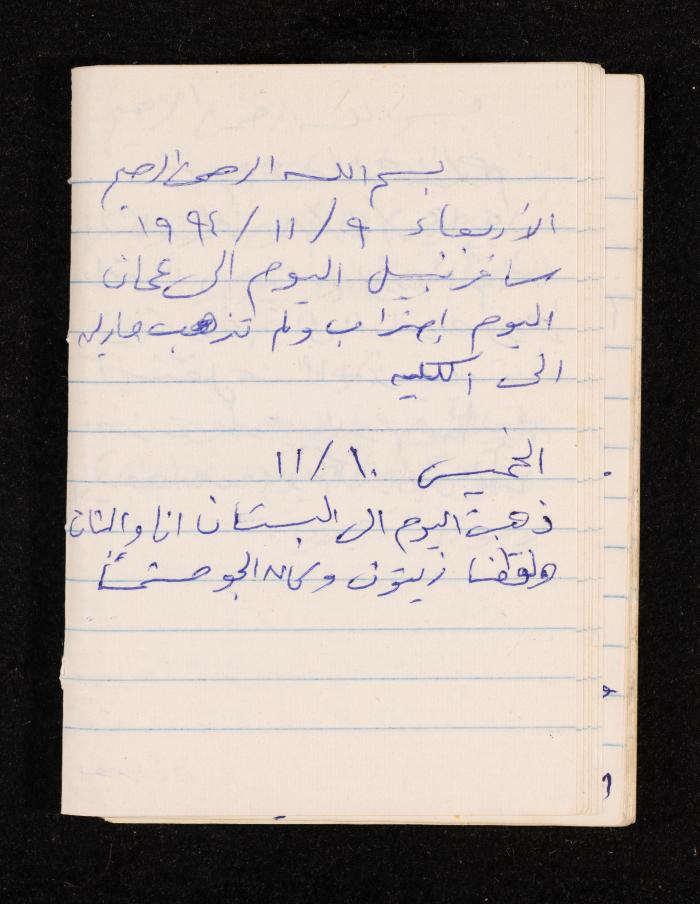 بسم الله الرحمن الرحيم
الأربعاء ٩ / ١١ / ١٩٩٤
سافر نبيل اليوم الى عمان
اليوم إضراب ولم تذهب
الى الكليه
الخميس ١٠ / ١١
ذهبت اليوم الى البستان انا
ولقطنا زيتون وكان الجو مشمساً